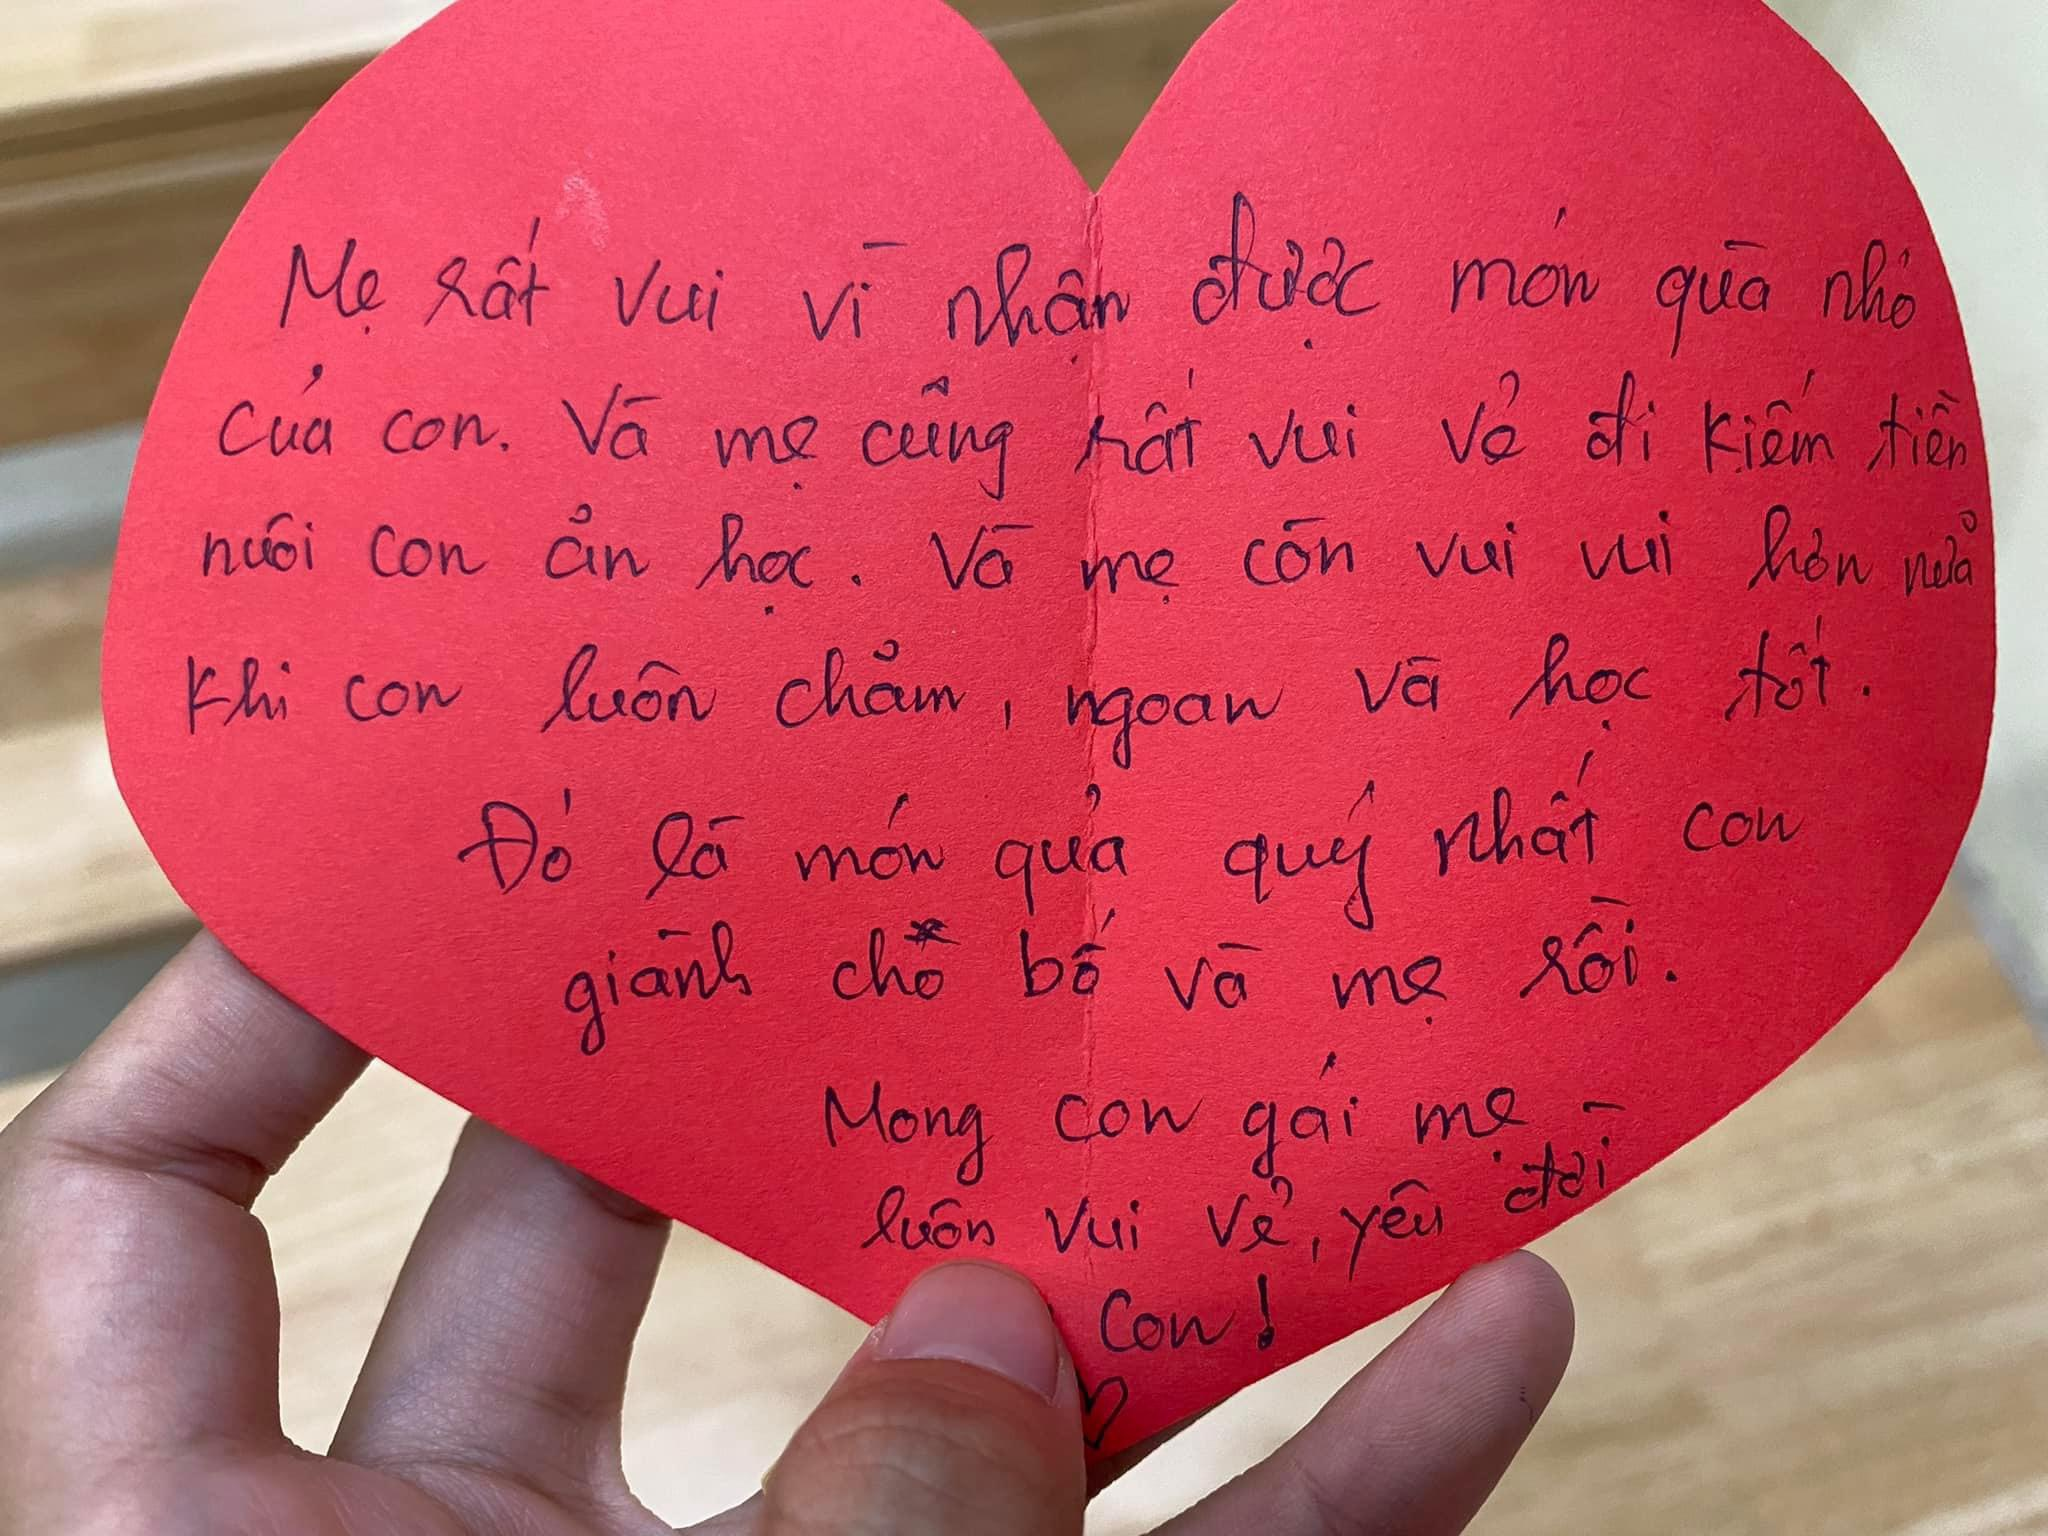 Mẹ rất vui vì nhận được món quà nhỏ
của con. Và mẹ cũng rất vui vẻ đi kiếm tiền
nuôi con ăn học. Và mẹ còn vui vui hơn nữa
khi con luôn chăm, ngoan và học tốt.
Đó là món quả quý nhất con
giành cho bố và mẹ rồi.
Mong con gái mẹ
luôn vui vẻ, yêu đời
con!